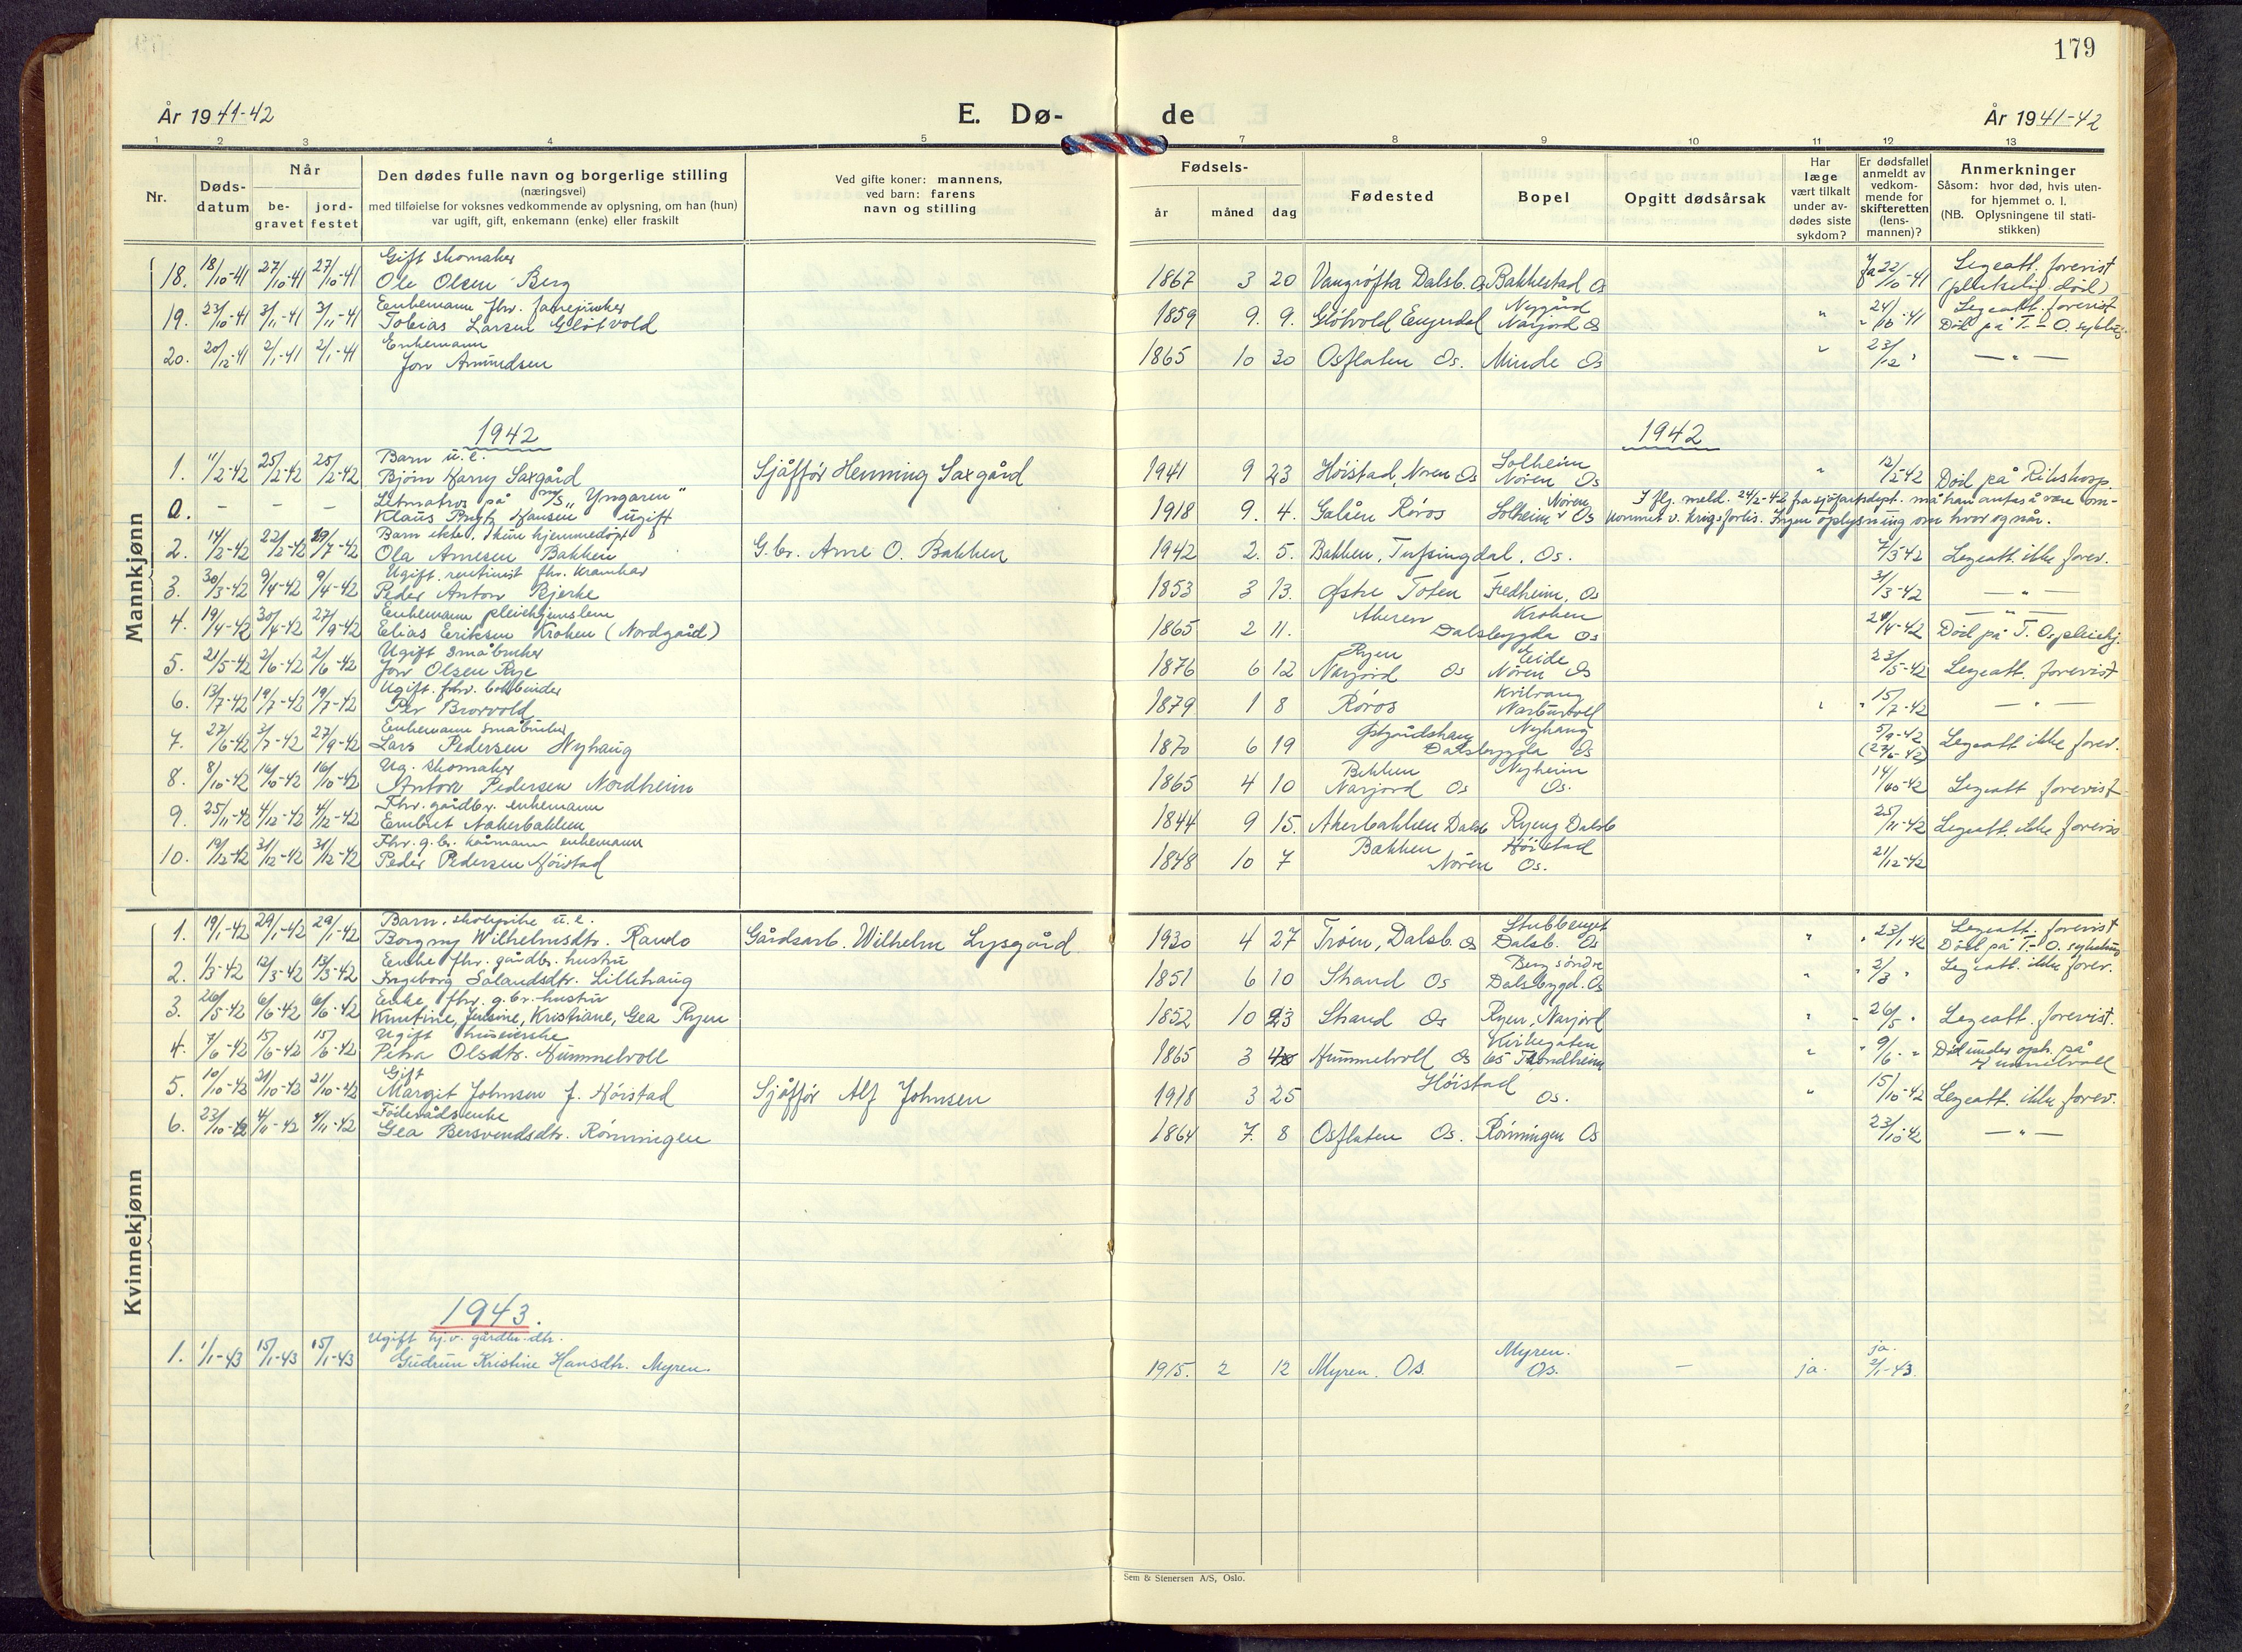 179
År 1941-42
E. Dø-
de
År 1941-42
1 2 3 4 5 7 8 9 10 11 12 13
Nr.
Døds-
datum
Når
be-
gravet
jord-
festet
Den dødes fulle navn og borgerlige stilling
(næringsvei)
med tilføielse for voksnes vedkommende av oplysning, om han (hun)
var ugift, gift, enkemann (enke) eller fraskilt
Ved gifte koner: mannens,
ved barn: farens
navn og stilling
Fødsels-
år måned dag
Fødested
Bopel
Opgitt dødsårsak
Har
læge
vært tilkalt
under av-
dødes siste
sykdom?
Er dødsfallet
anmeldt av
vedkom-
mende for
skifteretten
(lens-
mannen)?
Anmerkninger
Såsom: hvor død, hvis uten-
for hjemmet o. l.
(NB. Oplysningene til stati-
stikken)
Mannkjønn
Gift skomaker Legeatt. forevist
18. 18/10-41 27/10-41 27/10-41 Ole Olsen Berg 1867 3 20 Vangrøfta Dalsb. Os Bakkestad Os Ja 22/10-41
Enkemann fhv. Nygård Legeatt. forevist
19. 23/10-41 3/11-41 3/11-41 Tobias Larsen Gløtvold 1859 9. 9. Gløtvold Engerdal Narjord Os " " 24/10-41 Død på T.-O. sykehus
Enkemann
20. 20/12-41 2/1-41 2/1-41 Jon Amundsen 1865 10 30 Osflaten Os. Minde Os " 23/12 " — " —
1942 1942
Barn u.e. Solheim
1. 11/2-42 25/2-42 25/2-42 Bjørn Harry Saxgård Sjåffør Henning Saxgård 1941 9 23 Høistad, Noren Os Nøren Os " 12/2-42 Død på Rikshosp.
Letmatros på m/s "Yngaren" Nøren I flg. meld. 24/2-42 fra sjøfartsdept. må han antas å være om-
0. – – – Klaus Hansen ugift 1918 9. 4. Galåen Røros Solheim Os kommet v. krigsforlis. Ingen oplysning om hvor og når.
Barn ekte. hjemmedøpt
2. 14/2-42 22/2-42 29/7-42 Ola Arnesen Bakken G.br. Arne O. Bakken 1942 2. 5. Bakken, Tufsingdal, Os. 7/3-42 Legeatt. ikke forev.
Ugift rentenist fhv. kramkar
3. 30/3-42 9/4-42 9/4-42 Peder Anton Bjerke 1853 3 13. Østre Toten Fredheim, Os 31/3-42 — " —
Enkemann pleiehjemslem Akeren Kroken — " —
4. 19/4-42 30/4-42 27/9-42 Elias Eriksen Kroken (Nordgård) 1865 2 11. Dalsbygda Os 20/4-42 Død på T. Os pleiehj.
Ugift småbruker Ryen Eide
5. 21/5-42 2/6-42 2/6-42 Jon Olsen Rye 1876 6 12 Narjord Os Nøren Os 23/5-42 Legeatt. forevist
Ugift. fhv. bokbinder
6. 13/7-42 19/7-42 19/7-42 Per Brovold 1879 1 8 Røros Narbuvoll " " 15/7-42 — " —
Enkemann småbruker Nyhaug 5/9-42
7. 27/6-42 3/7-42 27/9-42 Lars Pedersen Nyhaug 1870 6 19 Dalsbygda Os (27/6-42) Legeatt ikke forev.
Ug. skomaker Bekken Nyheim
8. 8/10-42 16/10-42 16/10-42 Anton Pedersen Nordheim 1865 4 10 Narjord Os Os. 14/10-42 Legeatt forevist
Fhv. gårdbr. enkemann
9. 25/11-42 4/12-42 4/12-42 Embret Aakerbakken 1844 9 15. Akerbakken Dalsb Ryeng Dalsb 25/11-42 Legeatt. ikke forevis
Fhv. g.br. kårmann enkemann Bakken Høistad
10. 19/12-42 31/12-42 31/12-42 Peder Pedersen Høistad 1848 10 7 Nøren Os. 21/12-42
Kvinnekjønn
Barn, skolepike u.e. Stubbenget Legeatt. forevist
1. 19/1-42 29/1-42 29/1-42 Borgny Wilhelmsdtr. Rando Gårdsarb. Wilhelm Lysgård. 1930 4 27 Trøen, Dalsb. Os Dalsb. Os " " 23/1-42 Død på T.-O. sykehus
Enke fhv. gårdbr. hustru Berg søndre Legeatt. ikke forev.
2. 1/3-42 12/3-42 13/3-42 Ingeborg Salandsdtr. Lillehaug 1851 6 10 Strand Os Dalsbygd. Os " " 2/3 "
Enke, fhv. g.br.hustru
3. 26/5-42 6/6-42 6/6-42 Knutine, Jensine, Kristiane, Gea Ryen 1852 10 23 Strand Os Ryen, Narjord " " 26/5 " Legeatt. forevist.
Ugift huseierske Kirkegaten Død under oph. på
4. 7/6-42 15/6-42 15/6-42 Petra Olsdtr. Hummelvoll 1865 3 Hummelvoll Os 65 Trondheim " " 9/6 " Hummelvoll
Gift Høistad
5. 10/10-42 21/10-42 21/10-42 Margit Johnsen f. Høistad Sjåffør Alf Johnsen 1918 3 25 Os. " 15/10-42 Legeatt. ikke forev.
Føderådsenke
6. 23/10-42 4/11-42 4/11-42 Gea Bersvendsdtr. Rønningen 1864 7. 8 Osflaten Os. Rønningen Os 23/10-42 — " —
1943.
Ugift hj.v. gårdbr.dtr. Myren. ja.
1. 1/1-43 15/1-43 15/1-43 Gudrun Kristine Hansdtr. Myren. 1915. 2 12 Myren. Os. Os. – ja. 2/1-43.
Sem & Stenersen A/S, Oslo.